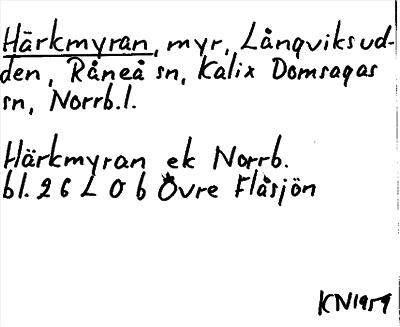 Härkmyran, myr, Långviksud-
den, Råneå sn, Kalix Domsagas
sn, Norrb.l.
Härkmyran ek Norrb.
bl. 26 L 0 b Övre Flåsjön
KN1959